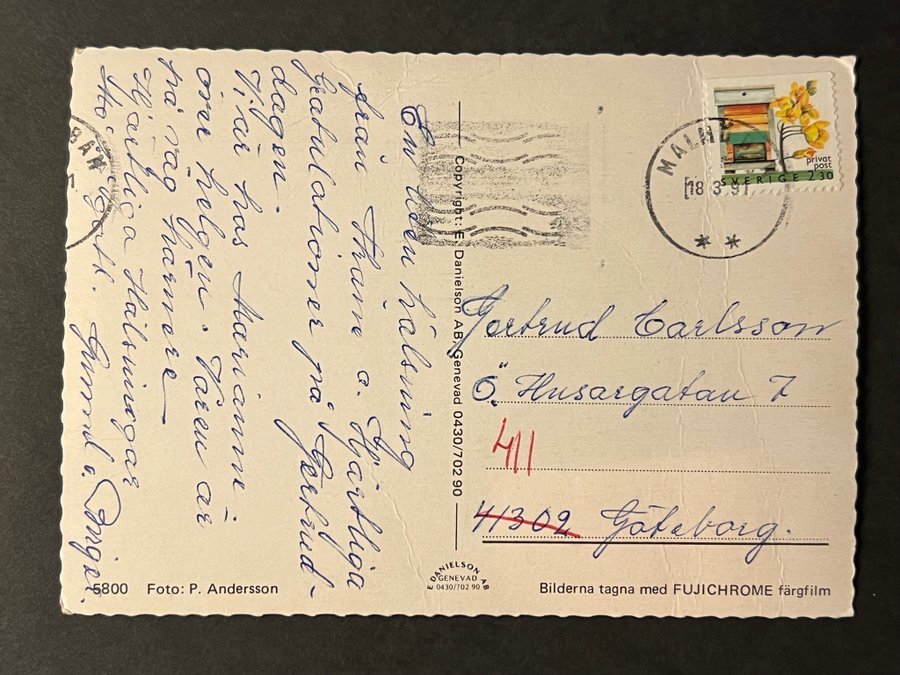 En liten hälsning
från Skåne o. Hjärtliga
Gratulationer på Gertrud-
dagen.
Vi är hos Marianne
över helgen. Våren är
på väg härnere
Hjärtliga Hälsningar
Gunnel o Börje.
BAN
Copyright: E Danielson AB, Genevad 0430/702 90
MALMÖ
18 3 91
privat
post
SVERIGE 2.30
Gertrud Carlsson
Ö. Husargatan 7
411
41302 Göteborg.
5800 Foto: P. Andersson
E DANIELSON AB
GENEVAD
0430/702 90
Bilderna tagna med FUJICHROME färgfilm